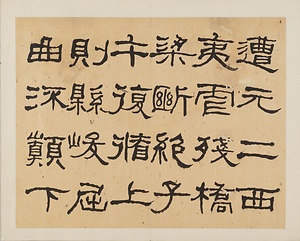 遭元二西
夷虐殘橋
梁斷絕子
午復循上
則縣峻屈
曲流顛下